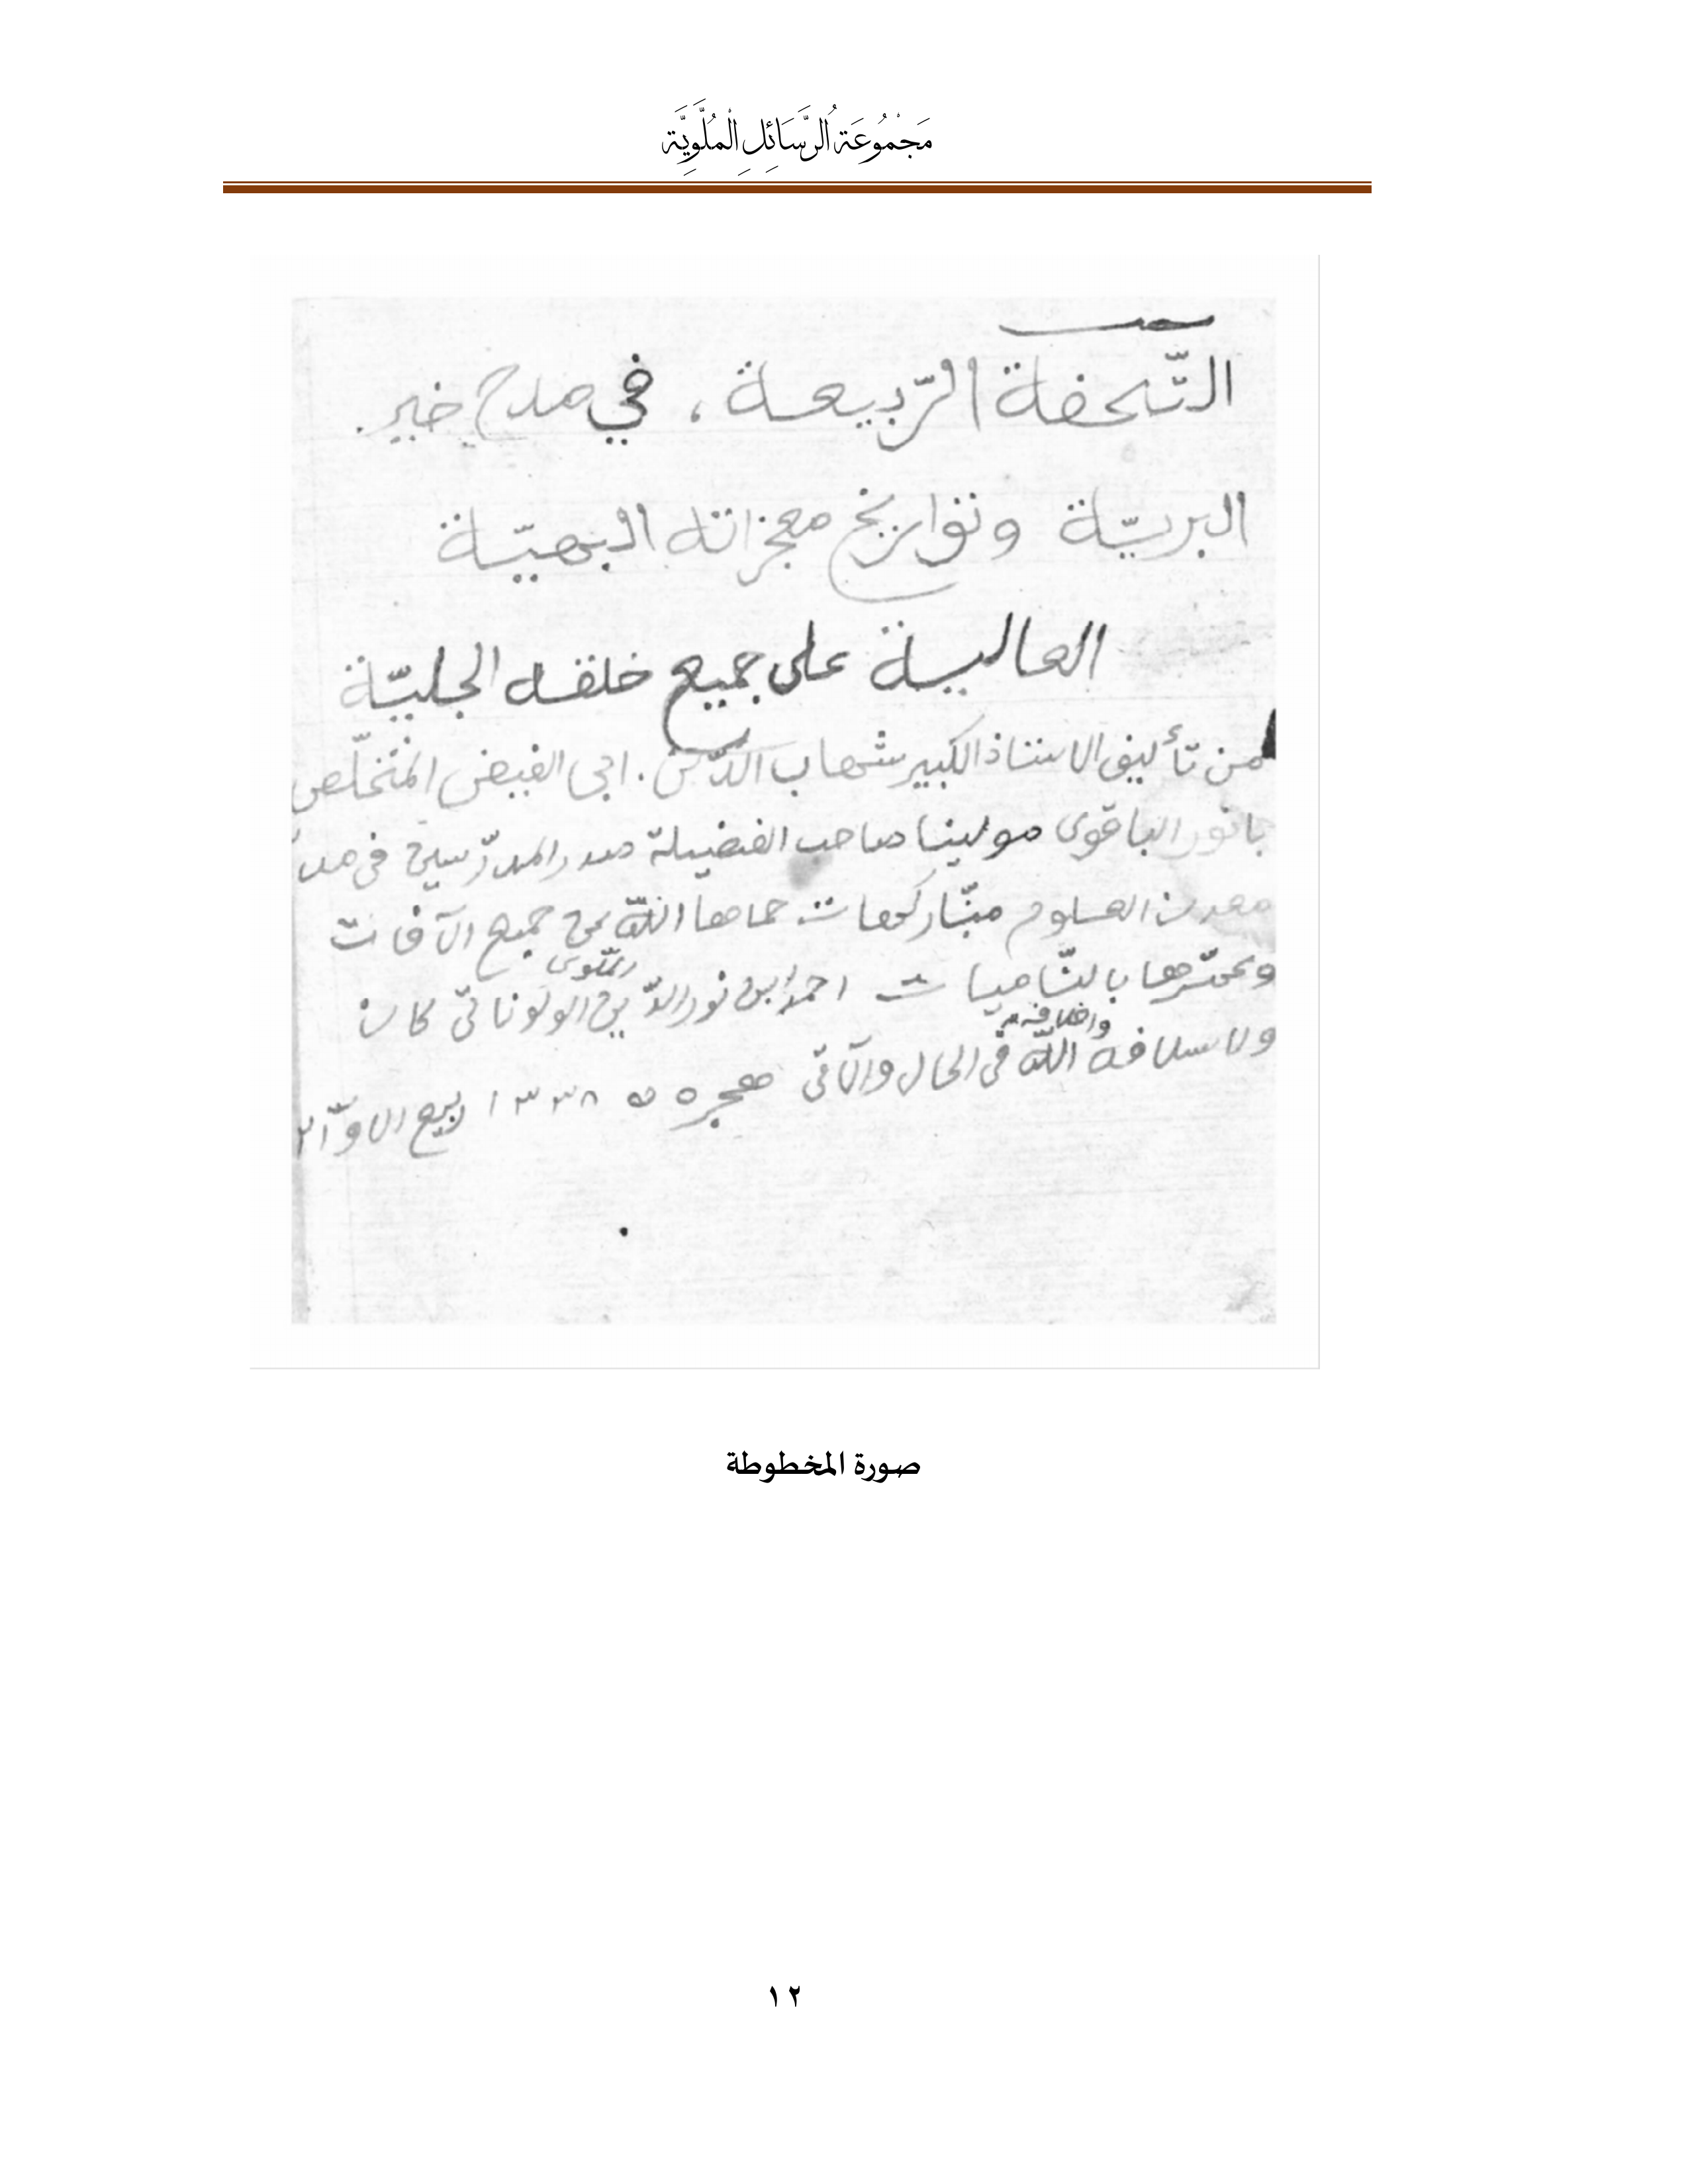 مَجْمُوعَةُ الرَّسَائِلِ الْمَلَّوِيَّةِ
التّحفة الرّبيعة، في مدح خير
البريّة وتواريخ معجزاته البهيّة
العالية على جميع خلقه الجليّة
من تأليف الاستاذ الكبير شهاب الدّين. ابى الفيض المتخلّص
بانور الباقوى مولينا صاحب الفضيلة صدر المدرّسين فى
معدن العلوم حماها اللّه عن جميع الآفات
احمد ابن نور الدّين الملّوى كان
واخلافه
ولاسلافه اللّه فى الحال والآتى هجره ١٣٣٨ ربيع الاوّل
صورة المخطوطة
١٢